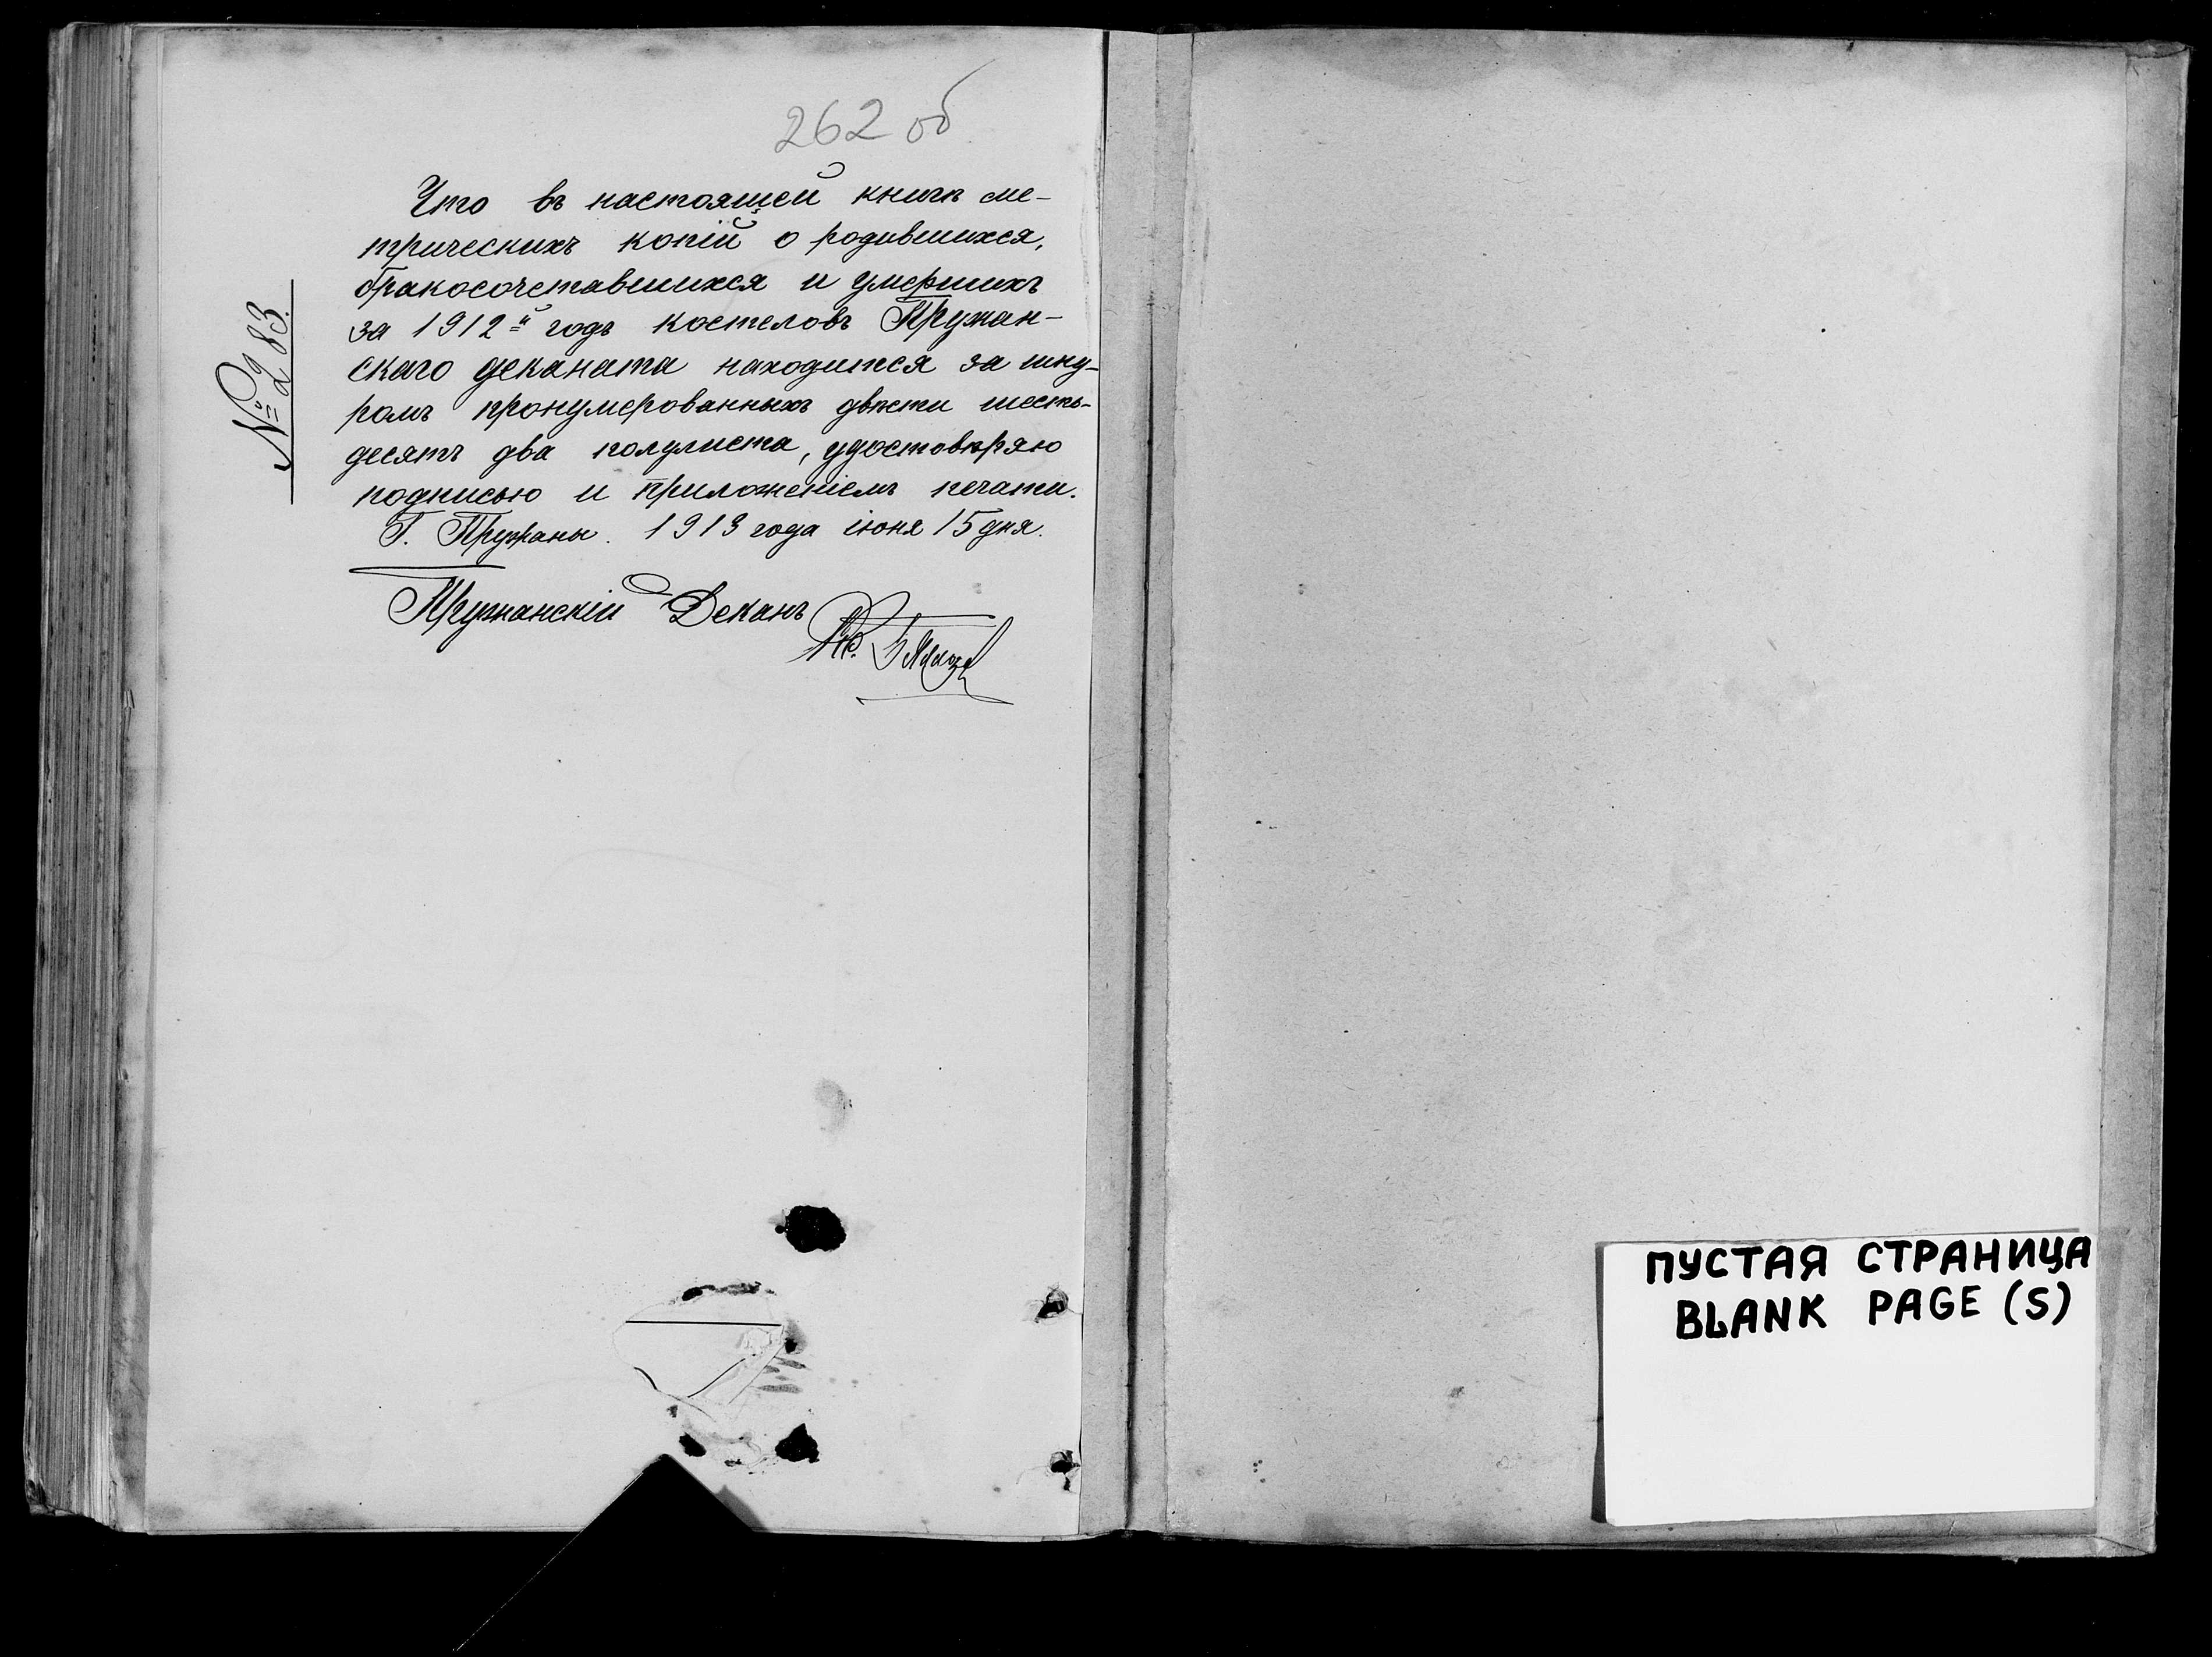 262 об
№ 283.
Что въ настоящей книгѣ ме-
трическихъ копiй о родившихся,
бракосочетавшихся и умершихъ
за 1912-й годъ костеловъ Пружан-
скаго деканата находится за шну-
ромъ пронумерованныхъ двѣсти шесть-
десятъ два полулиста, удостовѣряю
подписью и приложенiемъ печати.
Г. Пружаны. 1913 года iюня 15 дня.
Пружанскiй Деканъ
ПУСТАЯ СТРАНИЦА
BLANK PAGE (S)